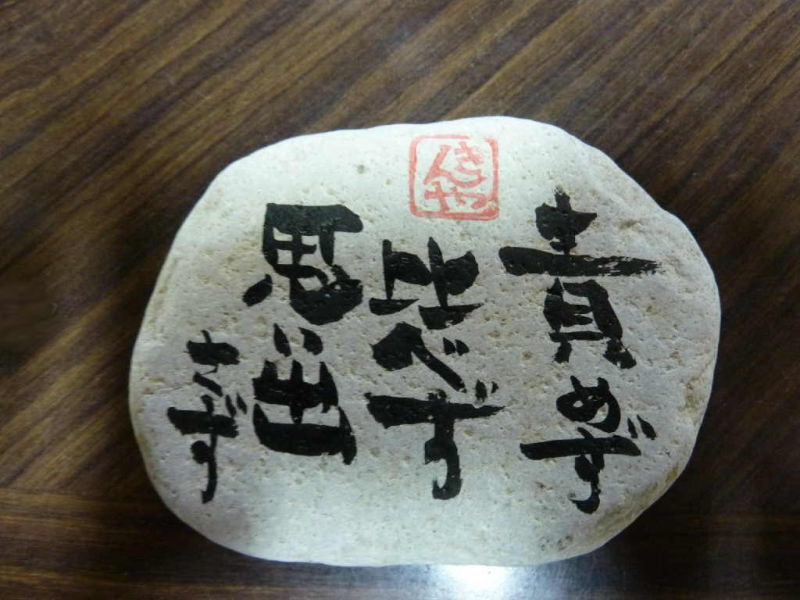 責めず
比べず
思い出
さず